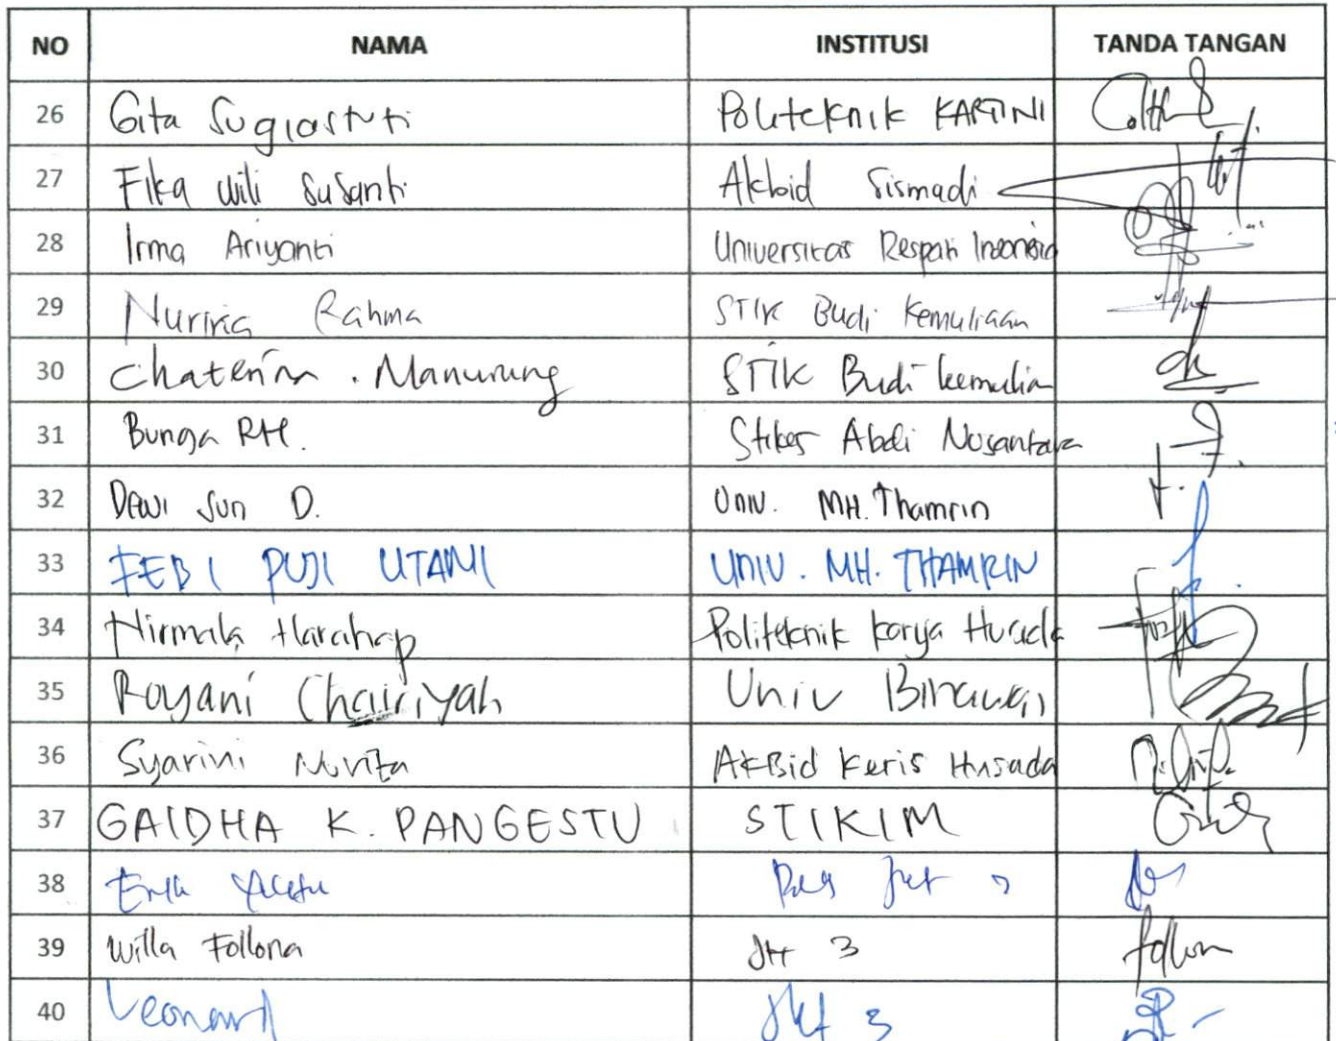 NO NAMA INSTITUSI TANDA TANGAN
26 Gita Sugiastuti Politeknik KARTINI
27 Fika Wili Susanti Akbid Sismadi
28 Irma Ariyanti Universitas Respati Indonesia
29 Rahma STIK Budi Kemuliaan
30 Chaterina . Manurung STIK Budi kemulia
31 Bunga RH. Stikes Abdi Nusantara
32 Dewi Suri D. Univ. MH. Thamrin
33 FEBI PUJI UTAMI UNIV. MH. THAMRIN
34 Nirmala Harahap Politeknik Karya Husada
35 Royani Chairiyah Univ Binawan
36 Syarini Novita AKBid Keris Husada
37 GAIDHA K. PANGESTU STIKIM
38
39 Willa Follona Jkt 3
40 Leonard Jkt 3